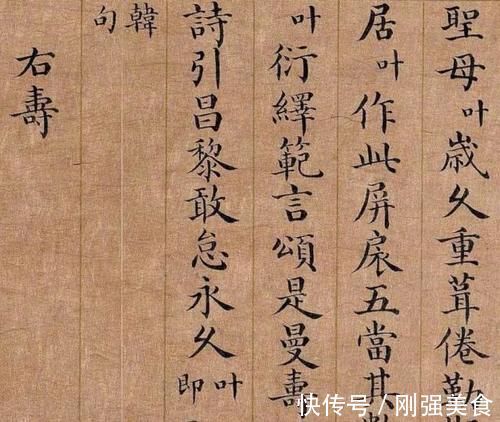 聖母叶歲久重葺倦勤
居叶作此屏扆五當其
叶衍繹範言頌是曼壽
詩引昌黎敢怠永久叶即
韓句
右壽
快传号/刚强美食